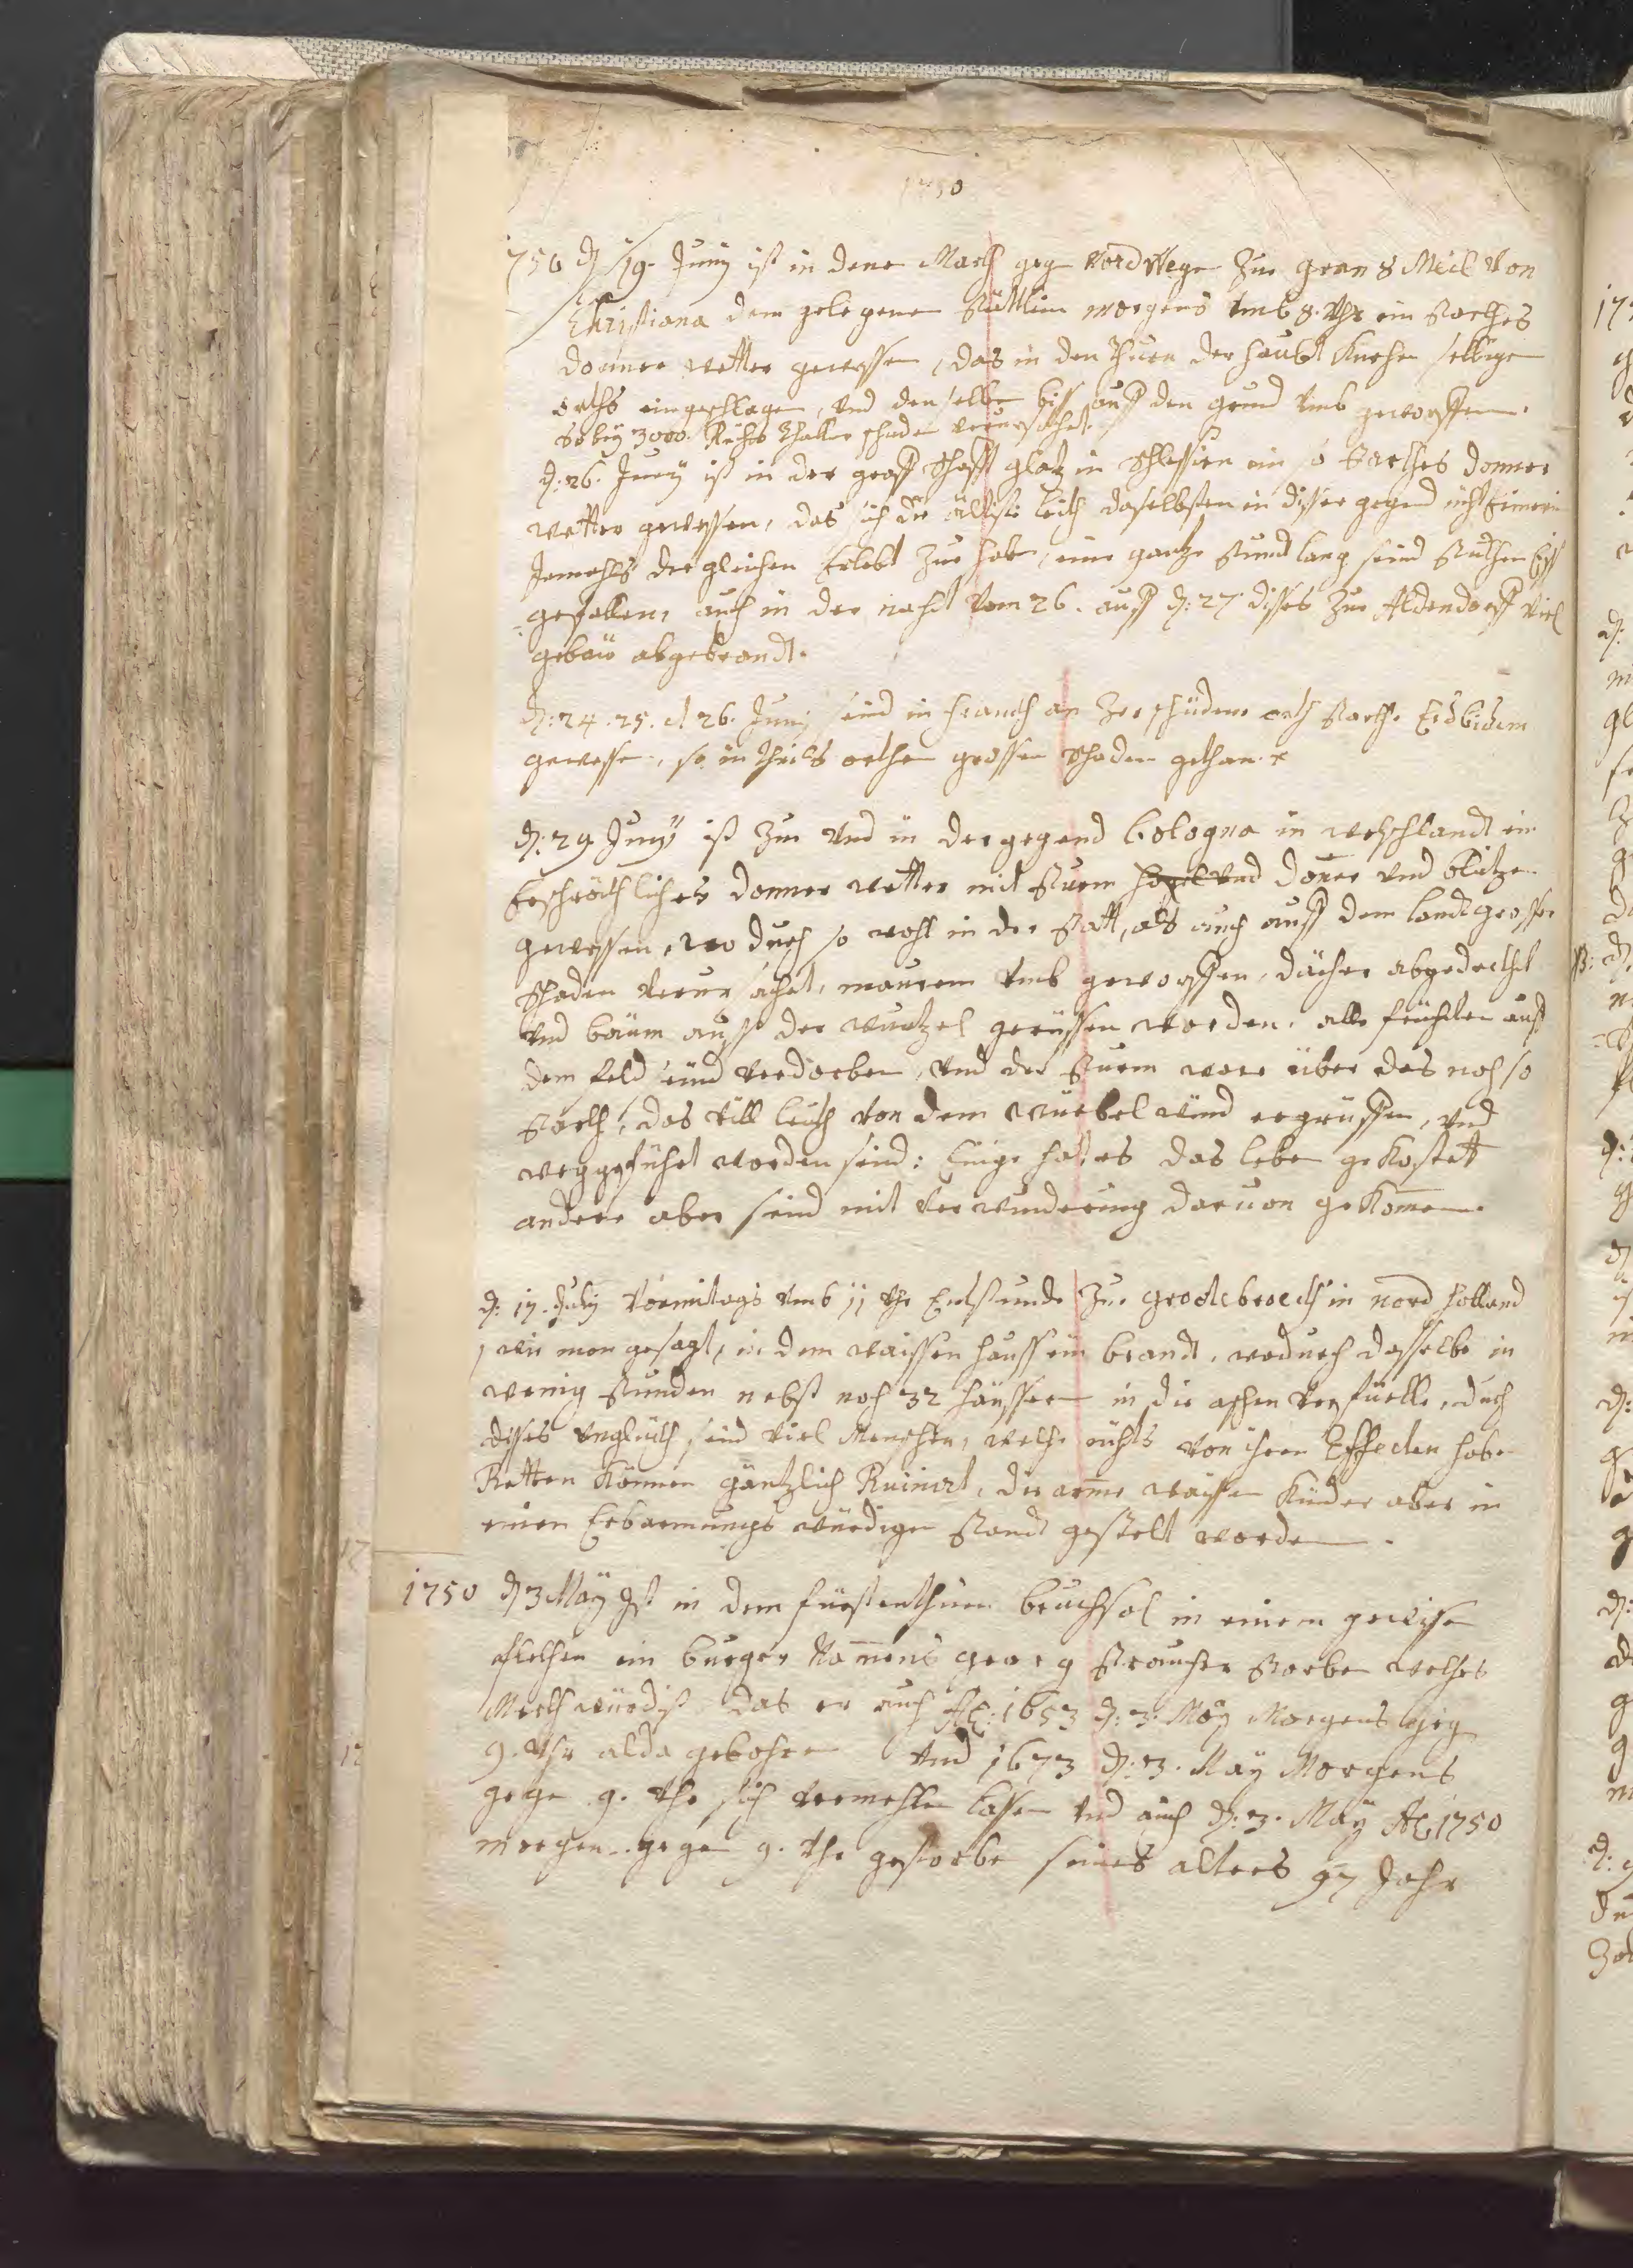 1750
1750 d 19. Juny ist in dene March geg nordwege Zue gran 8 Meil Von
Christiana dem gelegenen Stättlein morgens Vmb 8. Vhr ein Starckes
donner wetter gewessen, das in den thurn der haubt Kirchen selbigen
orths eingeschlagen, Vnd denselben biss auff den grund Vmb geworffen.
so bey 3000. Reichs thaller schaden verursachet.
d: 26. Juny ist in der graff schafft glatz in Schlessien ein so Starckes donner
wetter gewessen, das sich die ältiste leith daselbsten in disser gegend nicht Erinern
Jemahls dergleichen Erlebt Zue haben, eine gantze stund lang seind Stuckhen Eiss
gefallen, auch in der nacht Vom 26. auff d: 27. disses Zue Aldendorff Viel
gebäw abgebrandt.
d: 24. 25. et 26. Juny seind in Franckh an Zerschüdene orth starckhe Erdbidem
gewessen, so in theils orthen grossen schaden gethan.
d: 29 Juny ist Zue Vnd in der gegend bologna in welschlandt ein
Erschröckhliches donner wetter mit Sturm hagel Vnd doner Vnd blitzen
gewessen, wo durch so wohl in der Statt, als auch auff dem landt grossen
schaden Verursachet, mauren Vmb geworffen, dächer abgedeckhet
Vnd bäum auss der wurtzel gerüssen worden. alle früchten auff
dem feld sind Verdorben, Vnd der Sturm ware über das noch so
starckh, das Vill leuth Von dem würbel wind ergrüffen, Vnd
weggeführt worden sind: Einige hat es das leben gekostett
andere aber seind mit Verwunderung daruon gekomen.
d: 17. July Vormitags Vmb 11 Vhr Entstunde Zue grootebroeck in nord holland
wie man gesagt, in dem waissen hauss ein brandt, wodurch dasselbe in
wenig stunden nebst noch 32 häusser in die aschen Verfüelle, durch
disses Vnglückh sind Viel Menschen, welche nichts Von ihren Effecten haben
Retten können gäntzlich Ruiniert, die arme waisse Kinder aber in
einen Erbarmungs würdigen Standt gestelt worden.
1750 d 3 May Ist in dem fürstenthum bruchsal in einem gewissen
flecken ein burger Namens georg Straucher Storben welches
Merckwürdig das er auch Ao: 1653 d: 3. May Morgens gegen
9. Vhr alda gebohren Vnd 1673 d: 3. May Morgens
gegen 9. Vhr sich Vermehlen lassen Vnd auch d: 3. May Ao 1750
morgen gegen 9. Vhr gestorben seines alters 97 Jahr